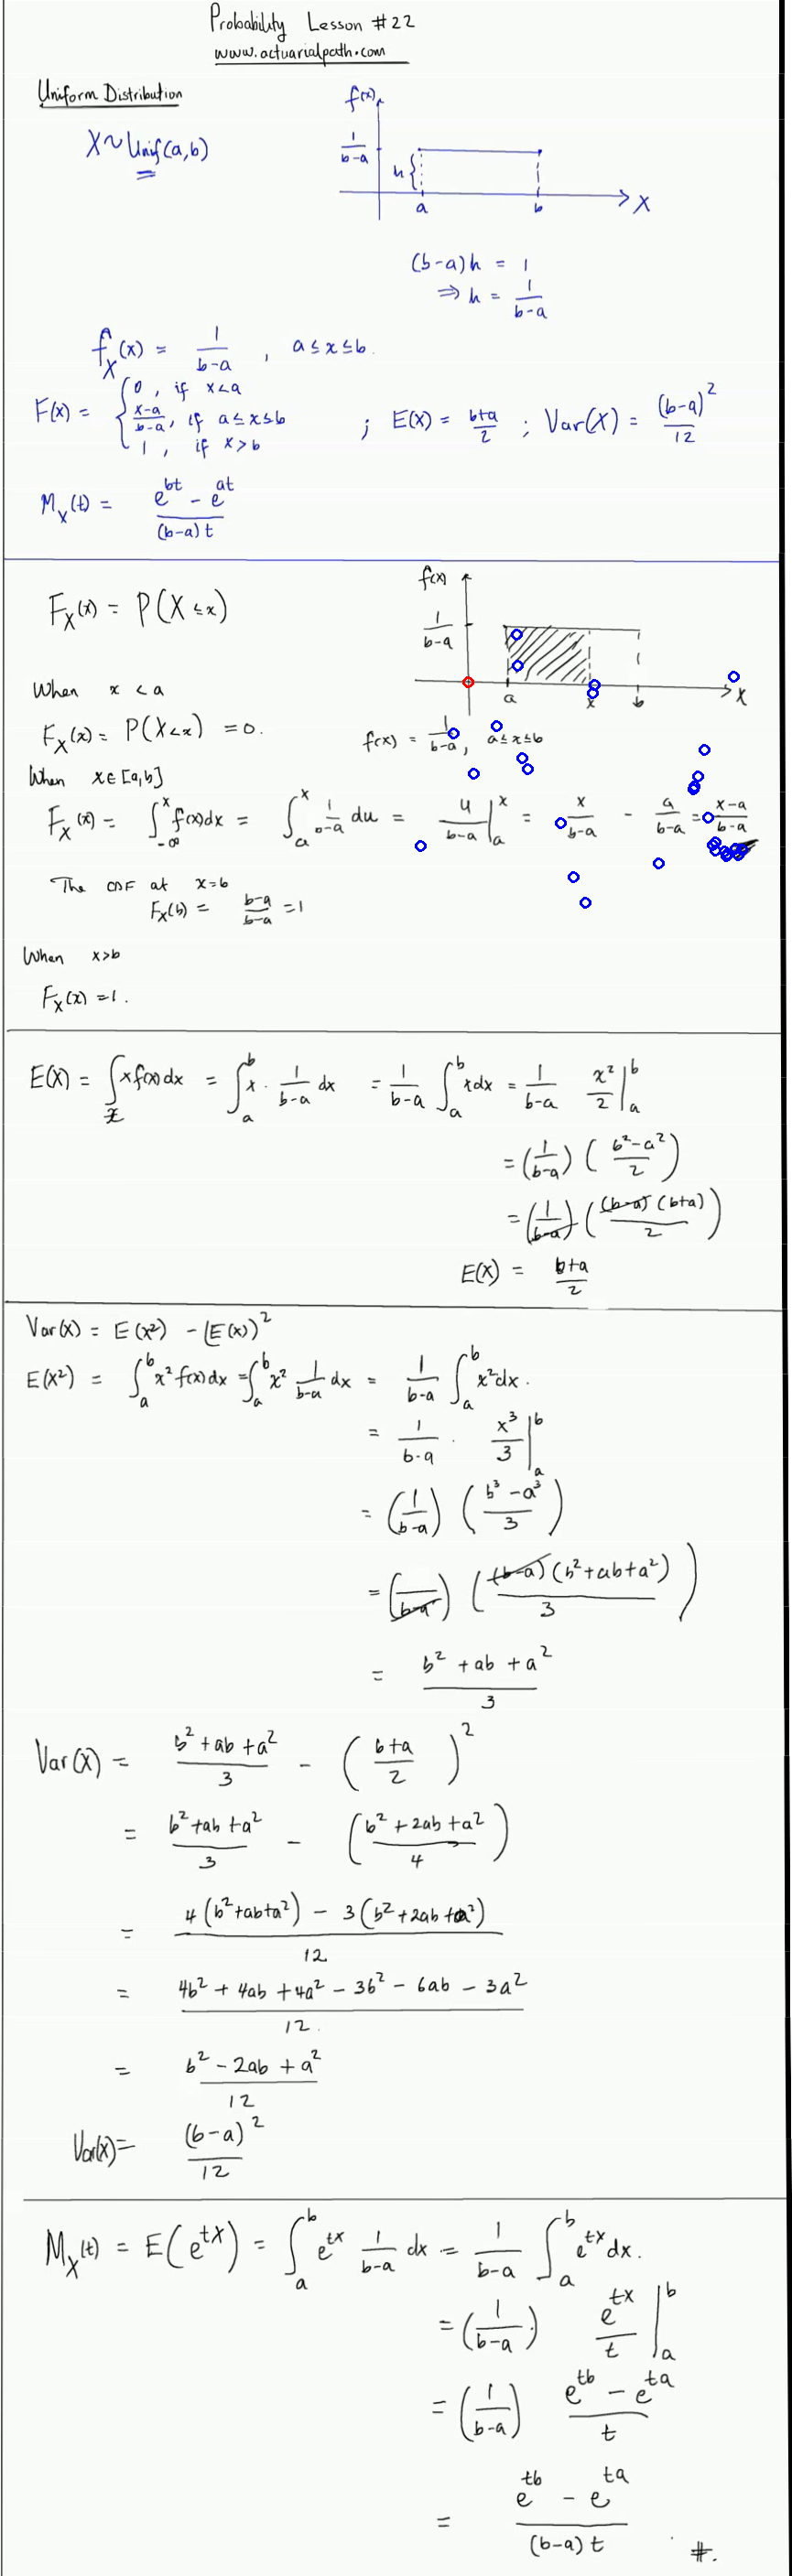 Probability Lesson #22
www.actuarialpath.com
Uniform Distribution
X ~ Unif(a,b)
f(x)
1/(b-a)
h{
a b X
(b-a)h = 1
⇒ h = 1/(b-a)
f_X(x) = 1/(b-a) , a ≤ x ≤ b.
F(x) = { 0, if x<a
(x-a)/(b-a), if a ≤ x ≤ b
1, if x>b
; E(X) = (b+a)/2 ; Var(X) = (b-a)²/12
M_X(t) = (e^{bt} - e^{at})/((b-a)t)
F_X(x) = P(X ≤ x)
f(x)
1/(b-a)
a x b X
f(x) = 1/(b-a), a ≤ x ≤ b
When x < a
F_X(x) = P(X<x) = 0.
When x∈[a,b]
F_X(x) = ∫_{-∞}^x f(x)dx = ∫_a^x 1/(b-a) du = u/(b-a) |_a^x = x/(b-a) - a/(b-a) = (x-a)/(b-a)
The CDF at x=b
F_X(b) = (b-a)/(b-a) = 1
When x>b
F_X(x) = 1.
E(X) = ∫_x x f(x) dx = ∫_a^b x · 1/(b-a) dx = 1/(b-a) ∫_a^b x dx = 1/(b-a) x²/2 |_a^b
= (1/(b-a)) ((b²-a²)/2)
= (1/(b-a)) ((b-a)(b+a)/2)
E(X) = (b+a)/2
Var(X) = E(X²) - (E(X))²
E(X²) = ∫_a^b x² f(x) dx = ∫_a^b x² 1/(b-a) dx = 1/(b-a) ∫_a^b x² dx.
= 1/(b-a) · x³/3 |_a^b
= (1/(b-a)) ((b³-a³)/3)
= (1/(b-a)) ((b-a)(b²+ab+a²)/3)
= (b²+ab+a²)/3
Var(X) = (b²+ab+a²)/3 - ((b+a)/2)²
= (b²+ab+a²)/3 - ((b²+2ab+a²)/4)
= (4(b²+ab+a²) - 3(b²+2ab+a²))/12
= (4b²+4ab+4a²-3b²-6ab-3a²)/12.
= (b²-2ab+a²)/12
Var(X) = (b-a)²/12
M_X(t) = E(e^{tX}) = ∫_a^b e^{tx} 1/(b-a) dx = 1/(b-a) ∫_a^b e^{tx} dx.
= (1/(b-a)) e^{tx}/t |_a^b
= (1/(b-a)) (e^{tb} - e^{ta})/t
= (e^{tb} - e^{ta})/((b-a)t) #.